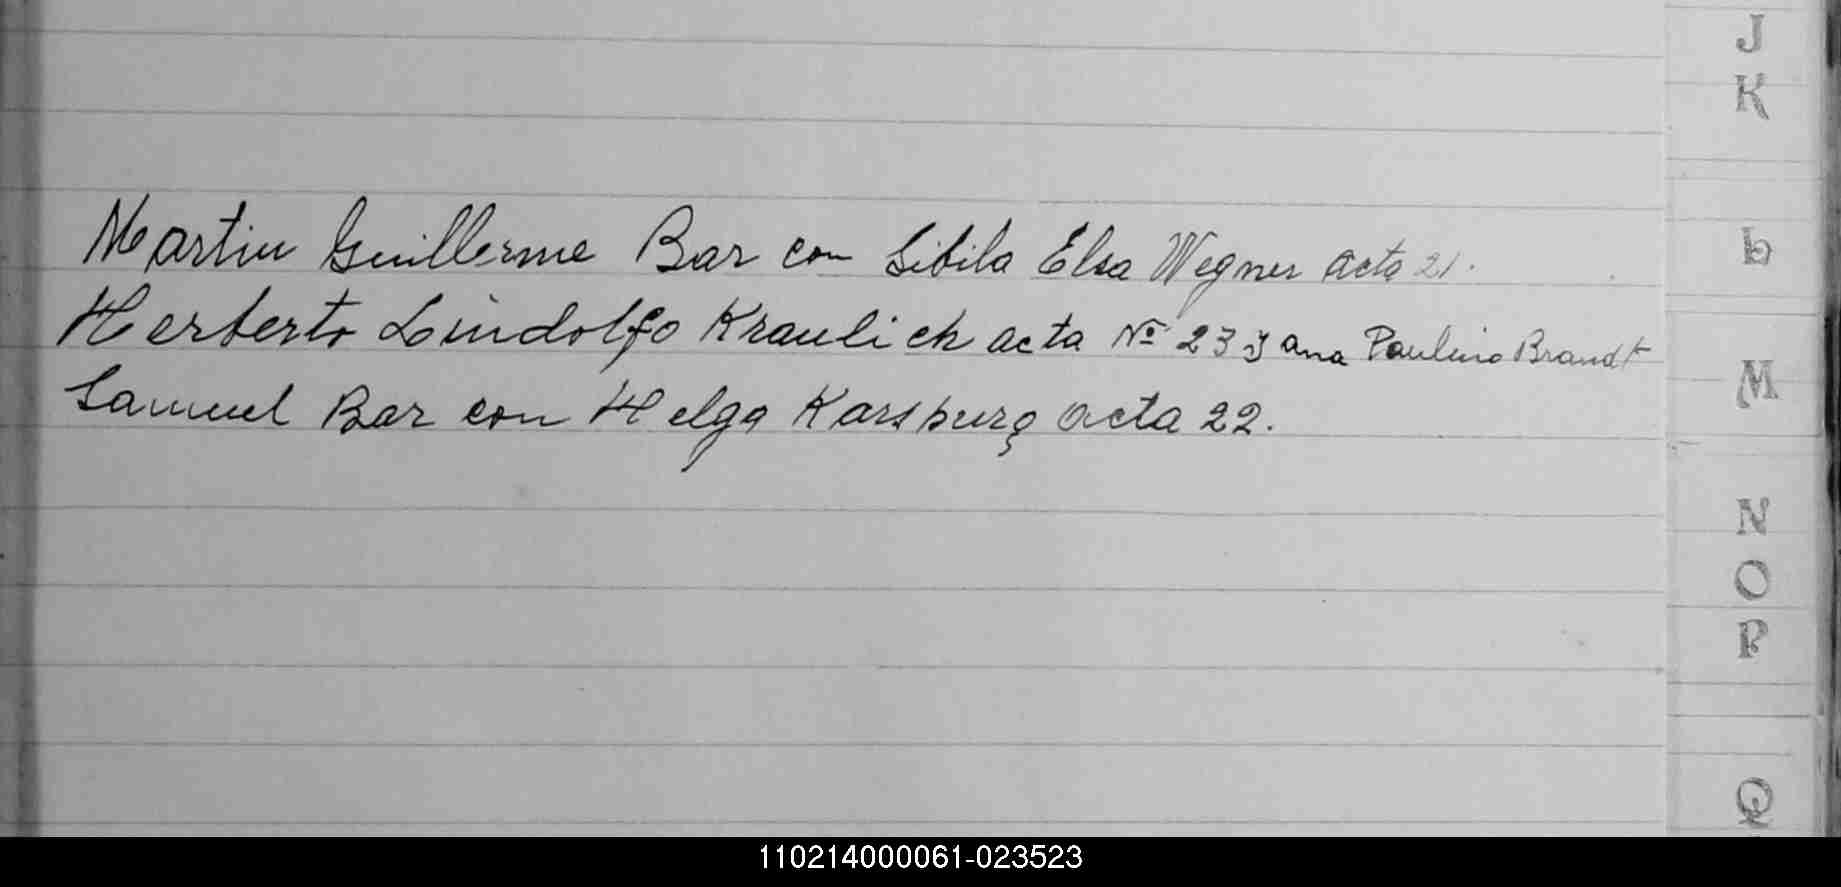 J
K
Martin Guillerme Bar con Sibila Elsa Wegner acta 21.
L
Herberto Lindolfo Kraulich acta Nº 23 y ana Paulina Brandt
M
Samuel Bar con Helga Karsburg acta 22.
N
O
P
Q
110214000061-023523